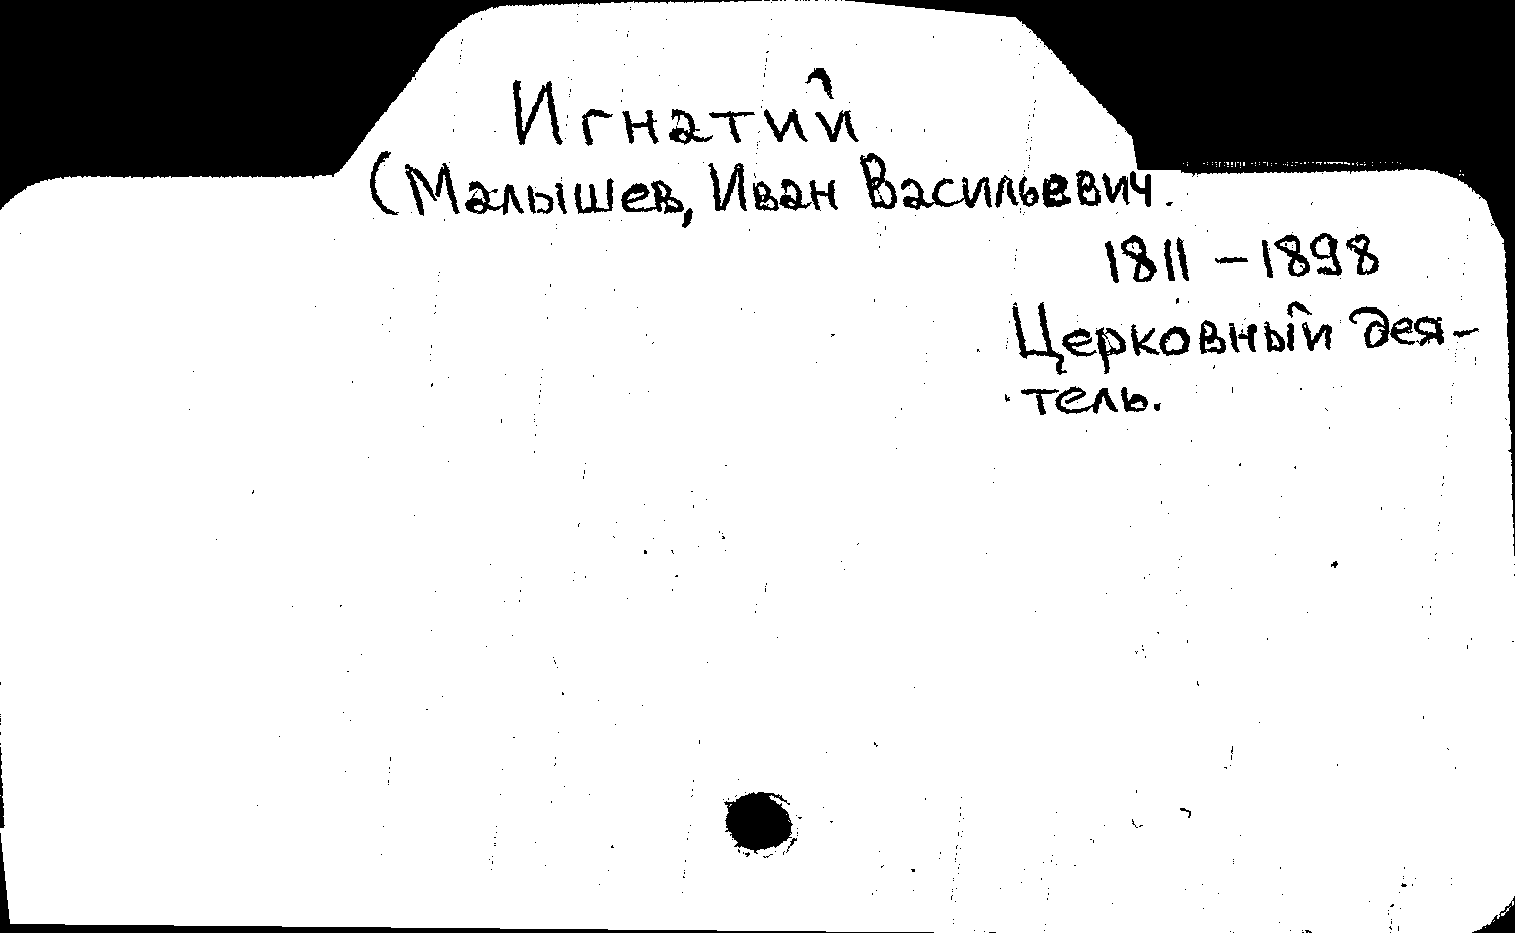 Игнатий
(Малышев, Иван Васильевич.
1811 – 1898
Церковный дея-
тель.